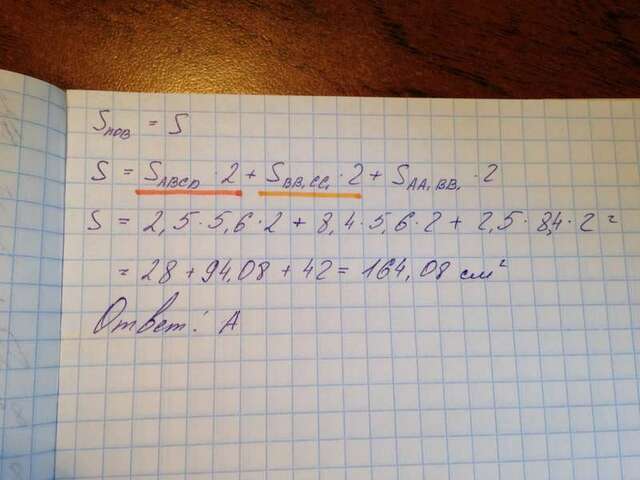 Sпов = S
S = S_ABCD · 2 + S_BB₁CC₁ · 2 + S_AA₁BB₁ · 2
S = 2,5 · 5,6 · 2 + 8,4 · 5,6 · 2 + 2,5 · 8,4 · 2 =
= 28 + 94,08 + 42 = 164,08 см²
Ответ: А